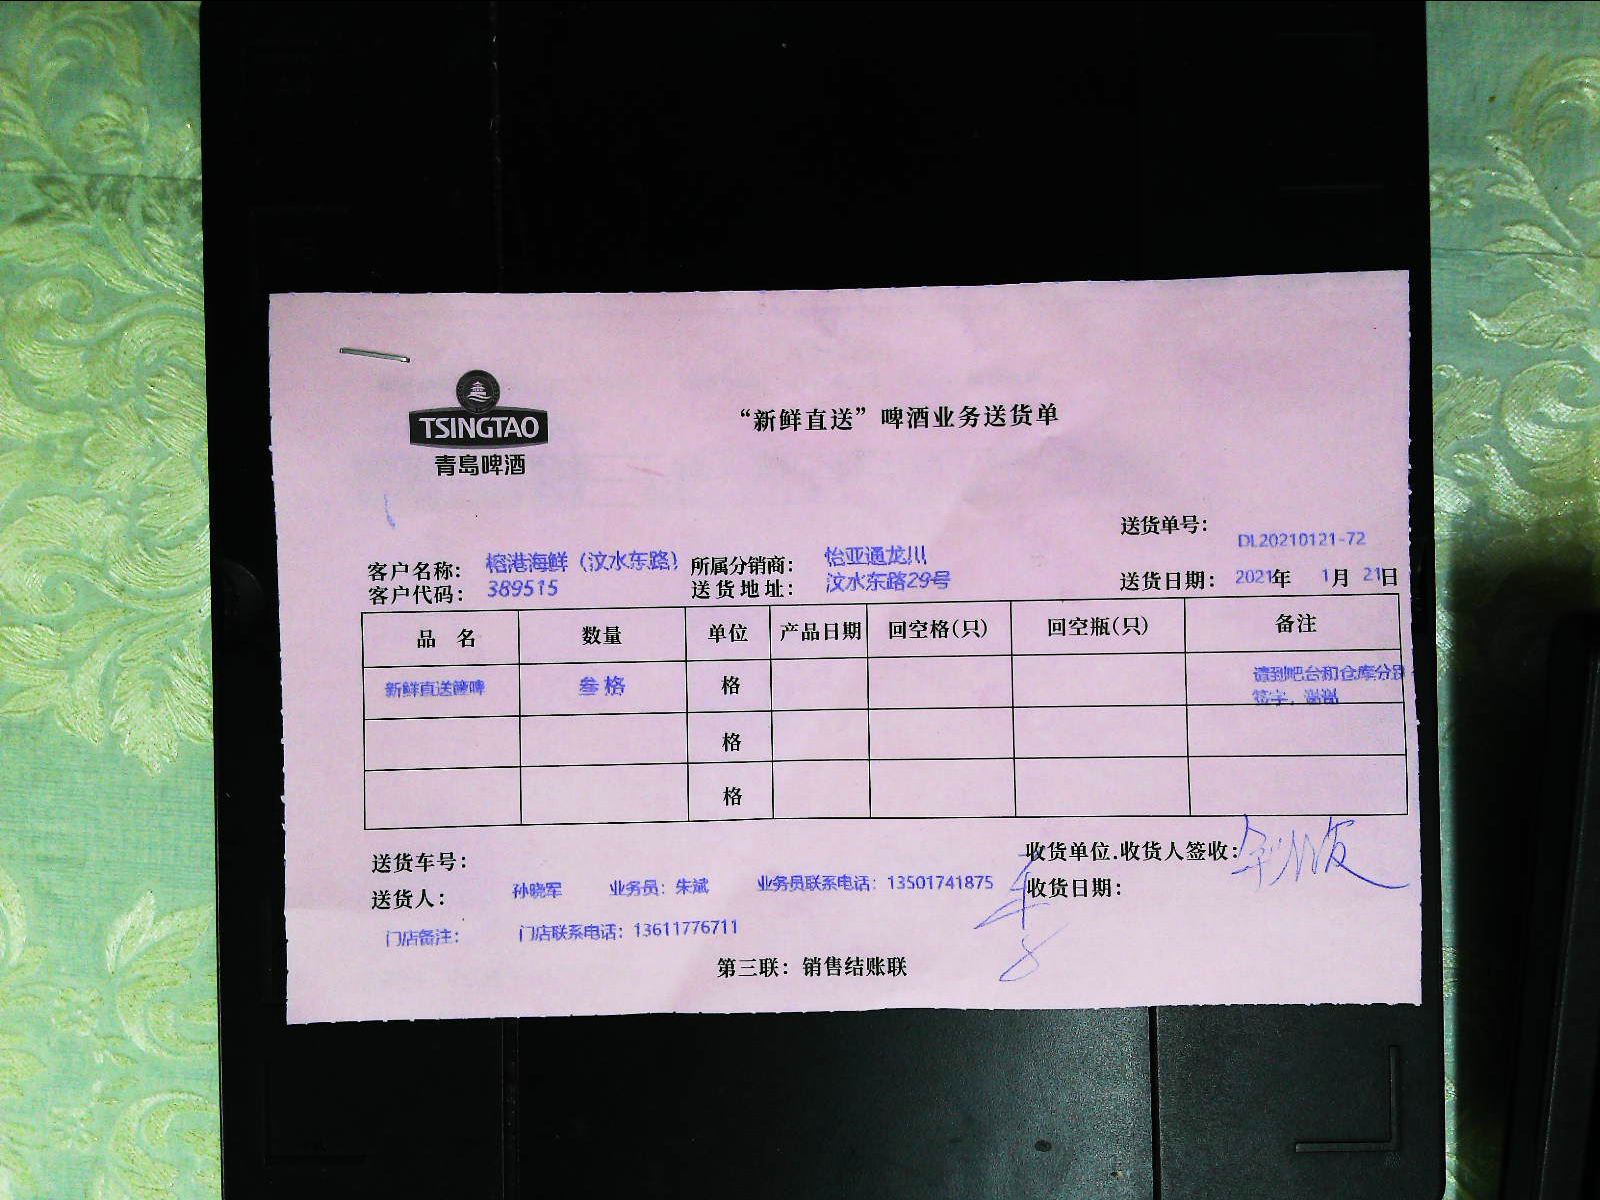 TSINGTAO
青岛啤酒
“新鲜直送”啤酒业务送货单
送货单号： DL20210121-72
客户名称： 榕港海鲜（汶水东路） 所属分销商： 怡亚通龙川
客户代码： 389515 送货地址： 汶水东路29号 送货日期： 2021年 1月 21日
品 名 数量 单位 产品日期 回空格(只) 回空瓶(只) 备注
新鲜直送箍啤 叁格 格 请到吧台和仓库分别
签字，谢谢
格
格
送货车号： 收货单位.收货人签收：
送货人： 孙晓军 业务员：朱斌 业务员联系电话：13501741875 收货日期：
门店备注： 门店联系电话：13611776711
第三联：销售结账联